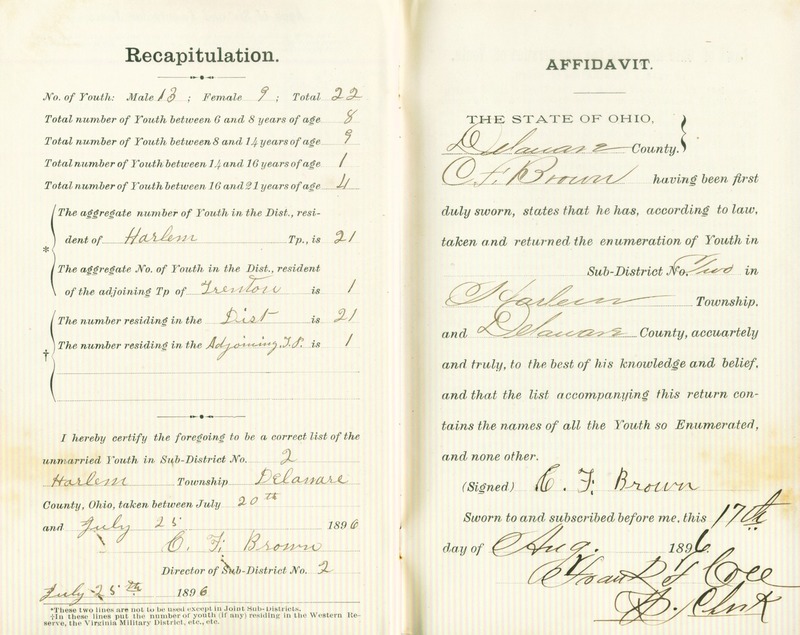 Recapitulation.
No. of Youth: Male 13 ; Female 9 ; Total 22
Total number of Youth between 6 and 8 years of age 8
Total number of Youth between 8 and 14 years of age 9
Total number of Youth between 14 and 16 years of age 1
Total number of Youth between 16 and 21 years of age 4
The aggregate number of Youth in the Dist., resi-
* dent of Harlem Tp., is 21
The aggregate No. of Youth in the Dist., resident
of the adjoining Tp of Trenton is 1
The number residing in the Dist is 21
† The number residing in the Adjoining T.P. is 1
I hereby certify the foregoing to be a correct list of the
unmarried Youth in Sub-District No. 2
Harlem Township Delaware
County, Ohio, taken between July 20th
and July 25 1896
C. F. Brown
Director of Sub-District No. 2
July 25th 1896
*These two lines are not to be used except in Joint Sub-Districts.
†In these lines put the number of youth (if any) residing in the Western Re-
serve, the Virginia Military District, etc., etc.
AFFIDAVIT.
THE STATE OF OHIO,
Delaware County.
C. F. Brown having been first
duly sworn, states that he has, according to law,
taken and returned the enumeration of Youth in
Sub-District No. Two in
Harlem Township,
and Delaware County, accuartely
and truly, to the best of his knowledge and belief,
and that the list accompanying this return con-
tains the names of all the Youth so Enumerated,
and none other.
(Signed) C. F. Brown
Sworn to and subscribed before me, this 17th
day of Aug. 1896.
Clerk